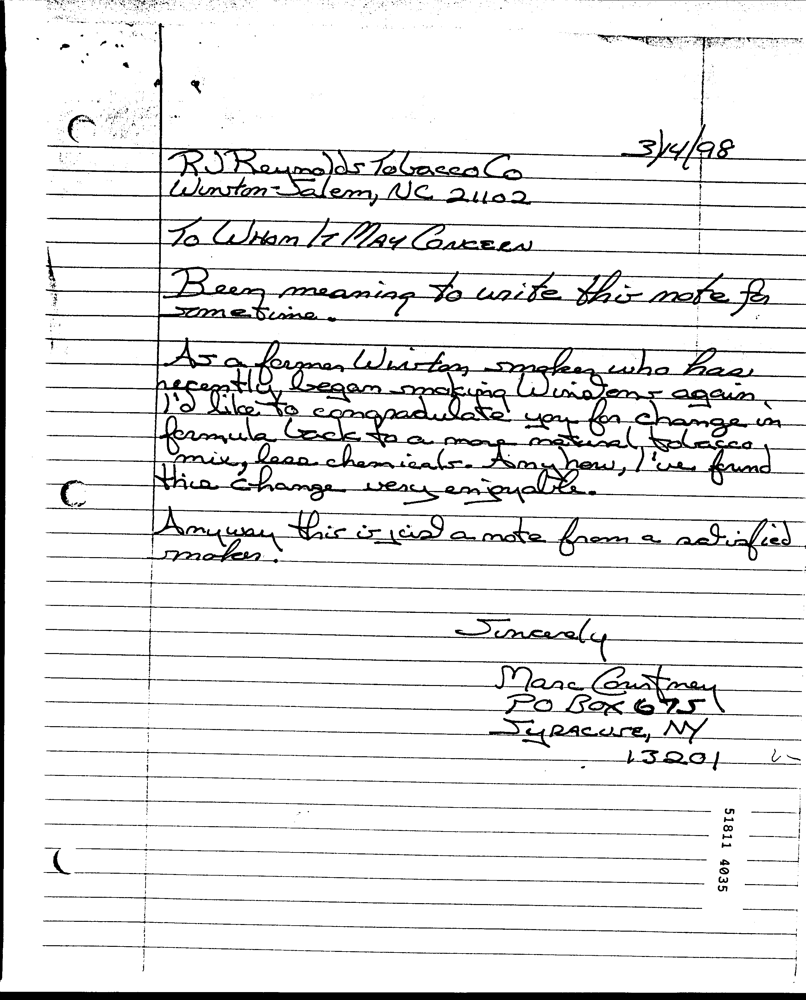 3/14/98
RJ Reynolds Tobacco Co
Winston-Salem, NC 21102
To Whom It May Concern
Been meaning to write this note for
sometime.
As a former Winston smoker who has
recently began smoking Winstons again,
I'd like to congradulate you for change in
formula back to a more natural tobacco
mix, less chemicals. Anyhow, I've found
this change very enjoyable.
Anyway this is just a note from a satisfied
smoker.
Sincerely
Marc Courtney
PO Box 675
Syracuse, NY
13201
51811 4035